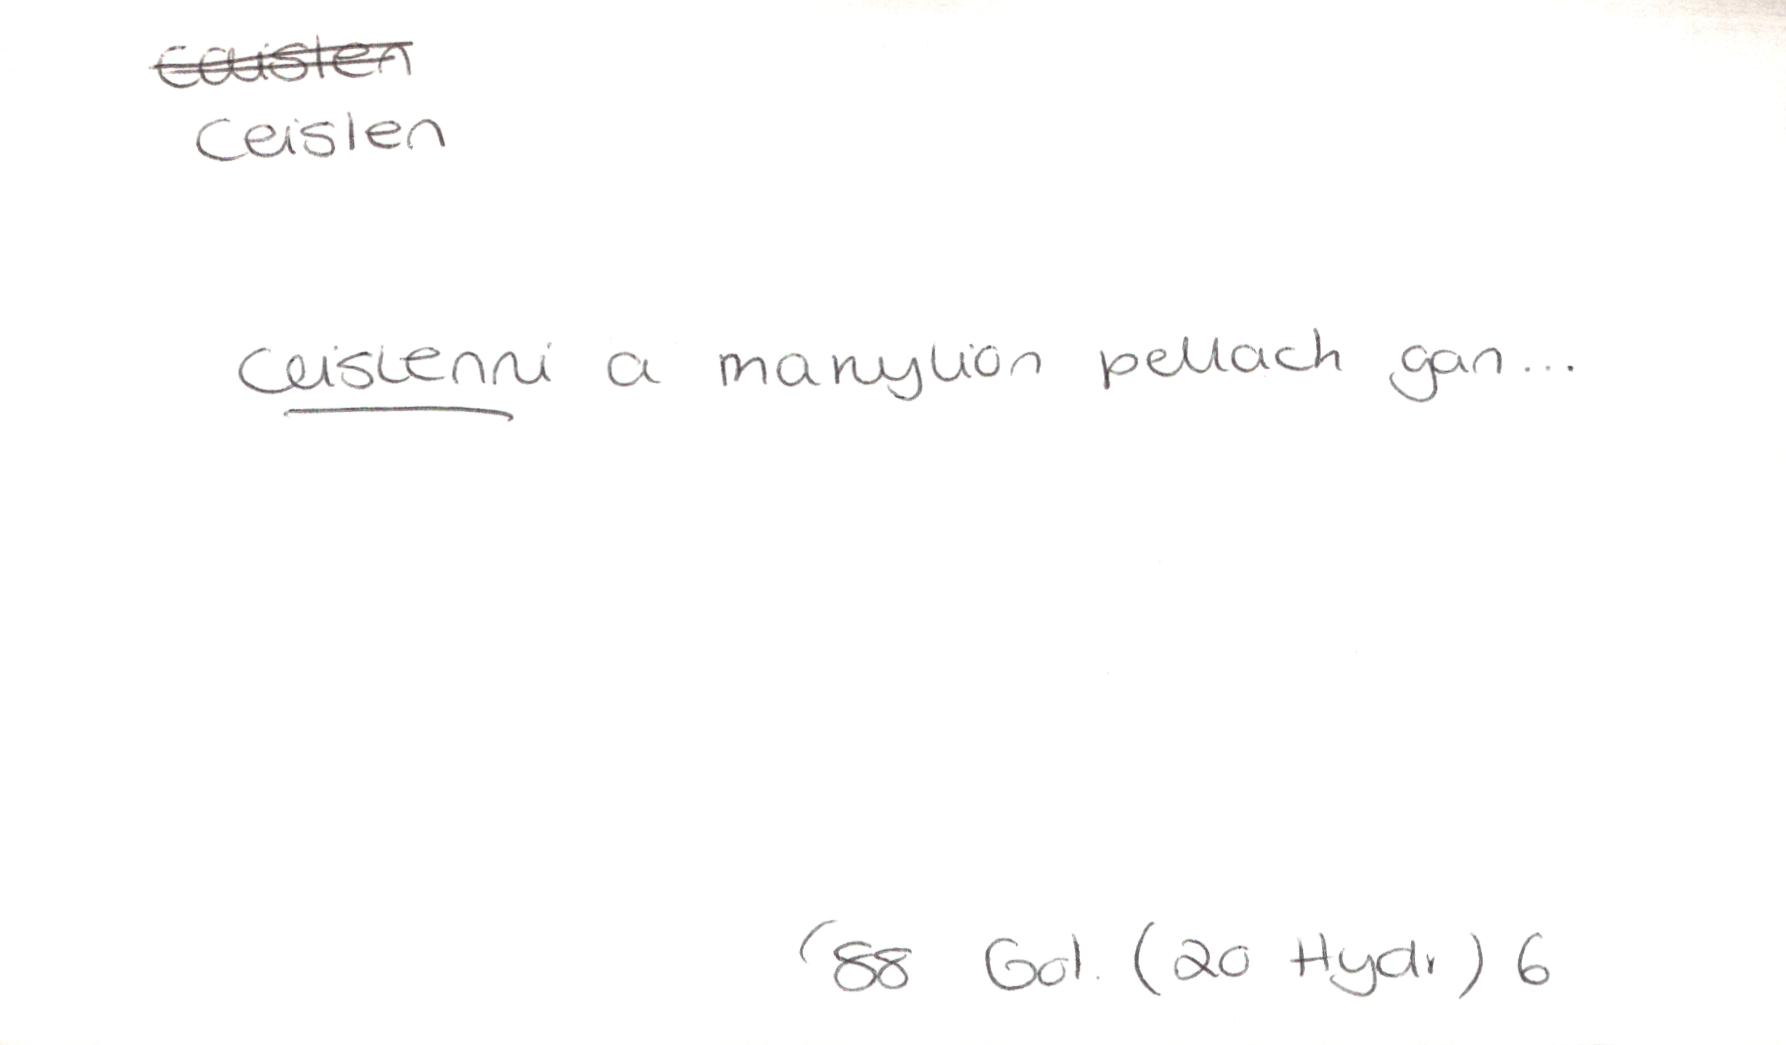 ceislen
Ceislen
ceislenni a manylion pellach gan...
'88 Gol. (20 Hydr) 6